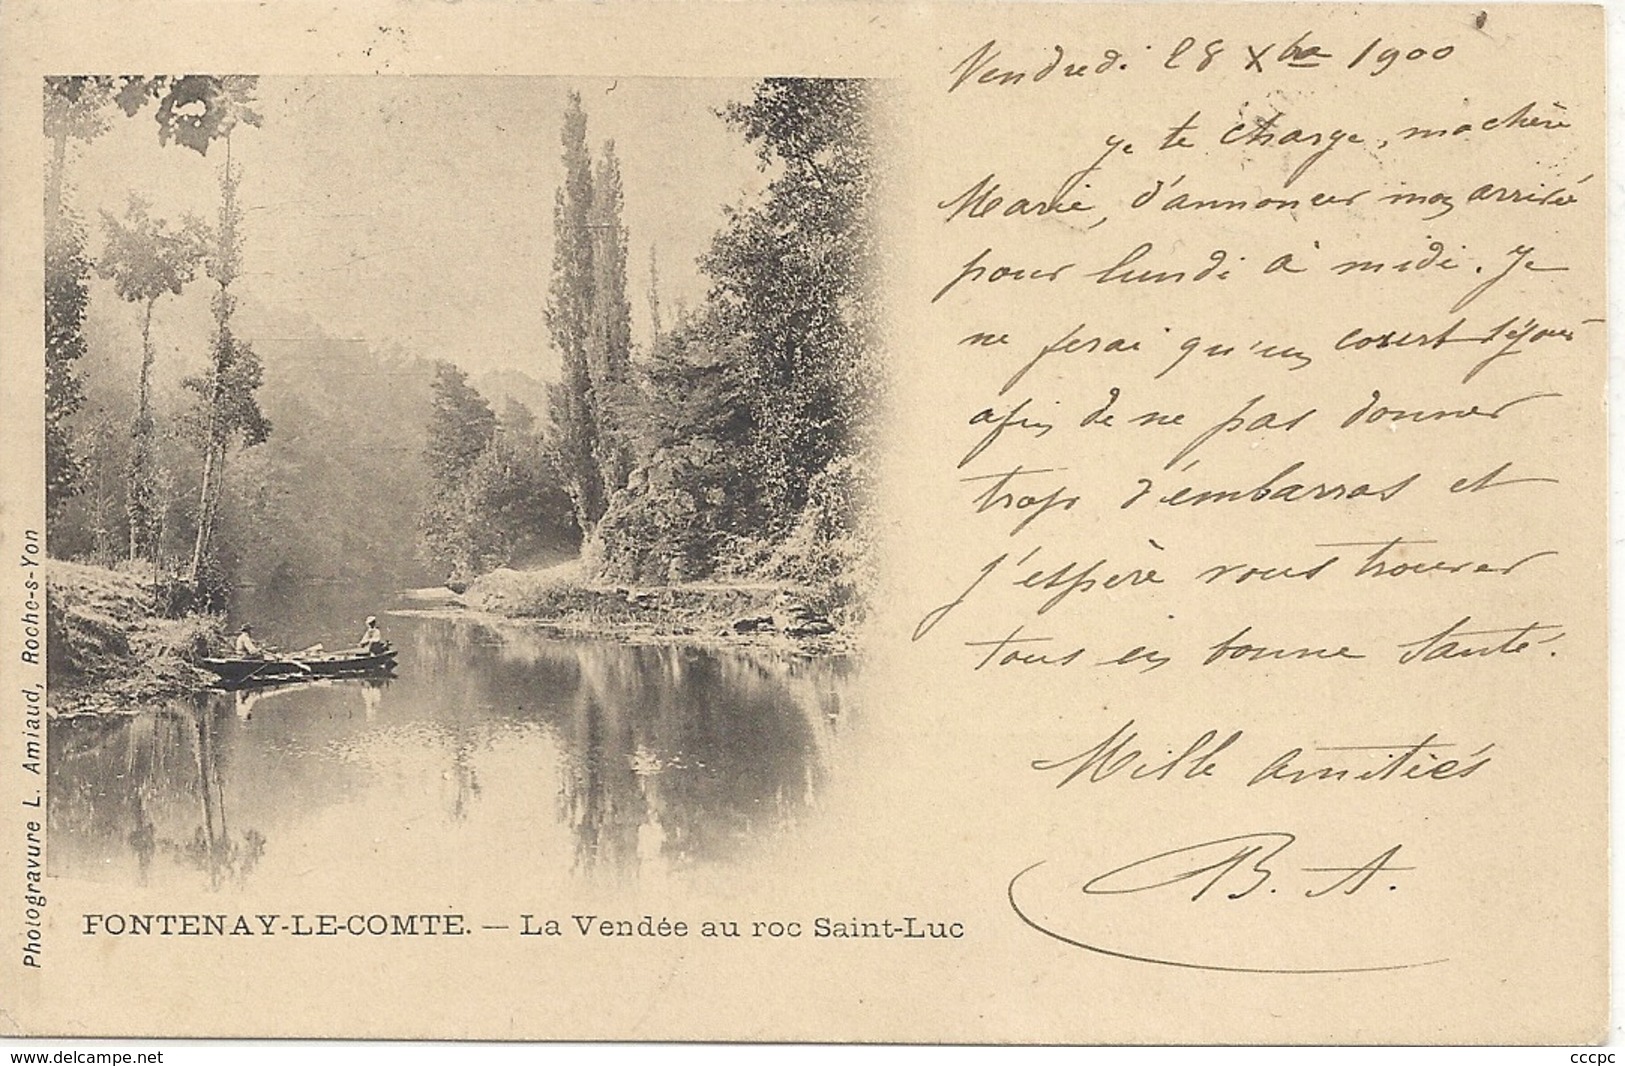 Vendredi 28 Xbre 1900
Je te charge, ma chère
Marie, d'annoncer mon arrivée
pour lundi à midi. Je
ne ferai qu'un court séjour
afin de ne pas donner
trop d'embarras et
j'espère vous trouver
tous en bonne santé.
Mille amitiés
B. A.
Photogravure L. Amiaud, Roche-s-Yon
FONTENAY-LE-COMTE. — La Vendée au roc Saint-Luc
www.delcampe.net
cccpc